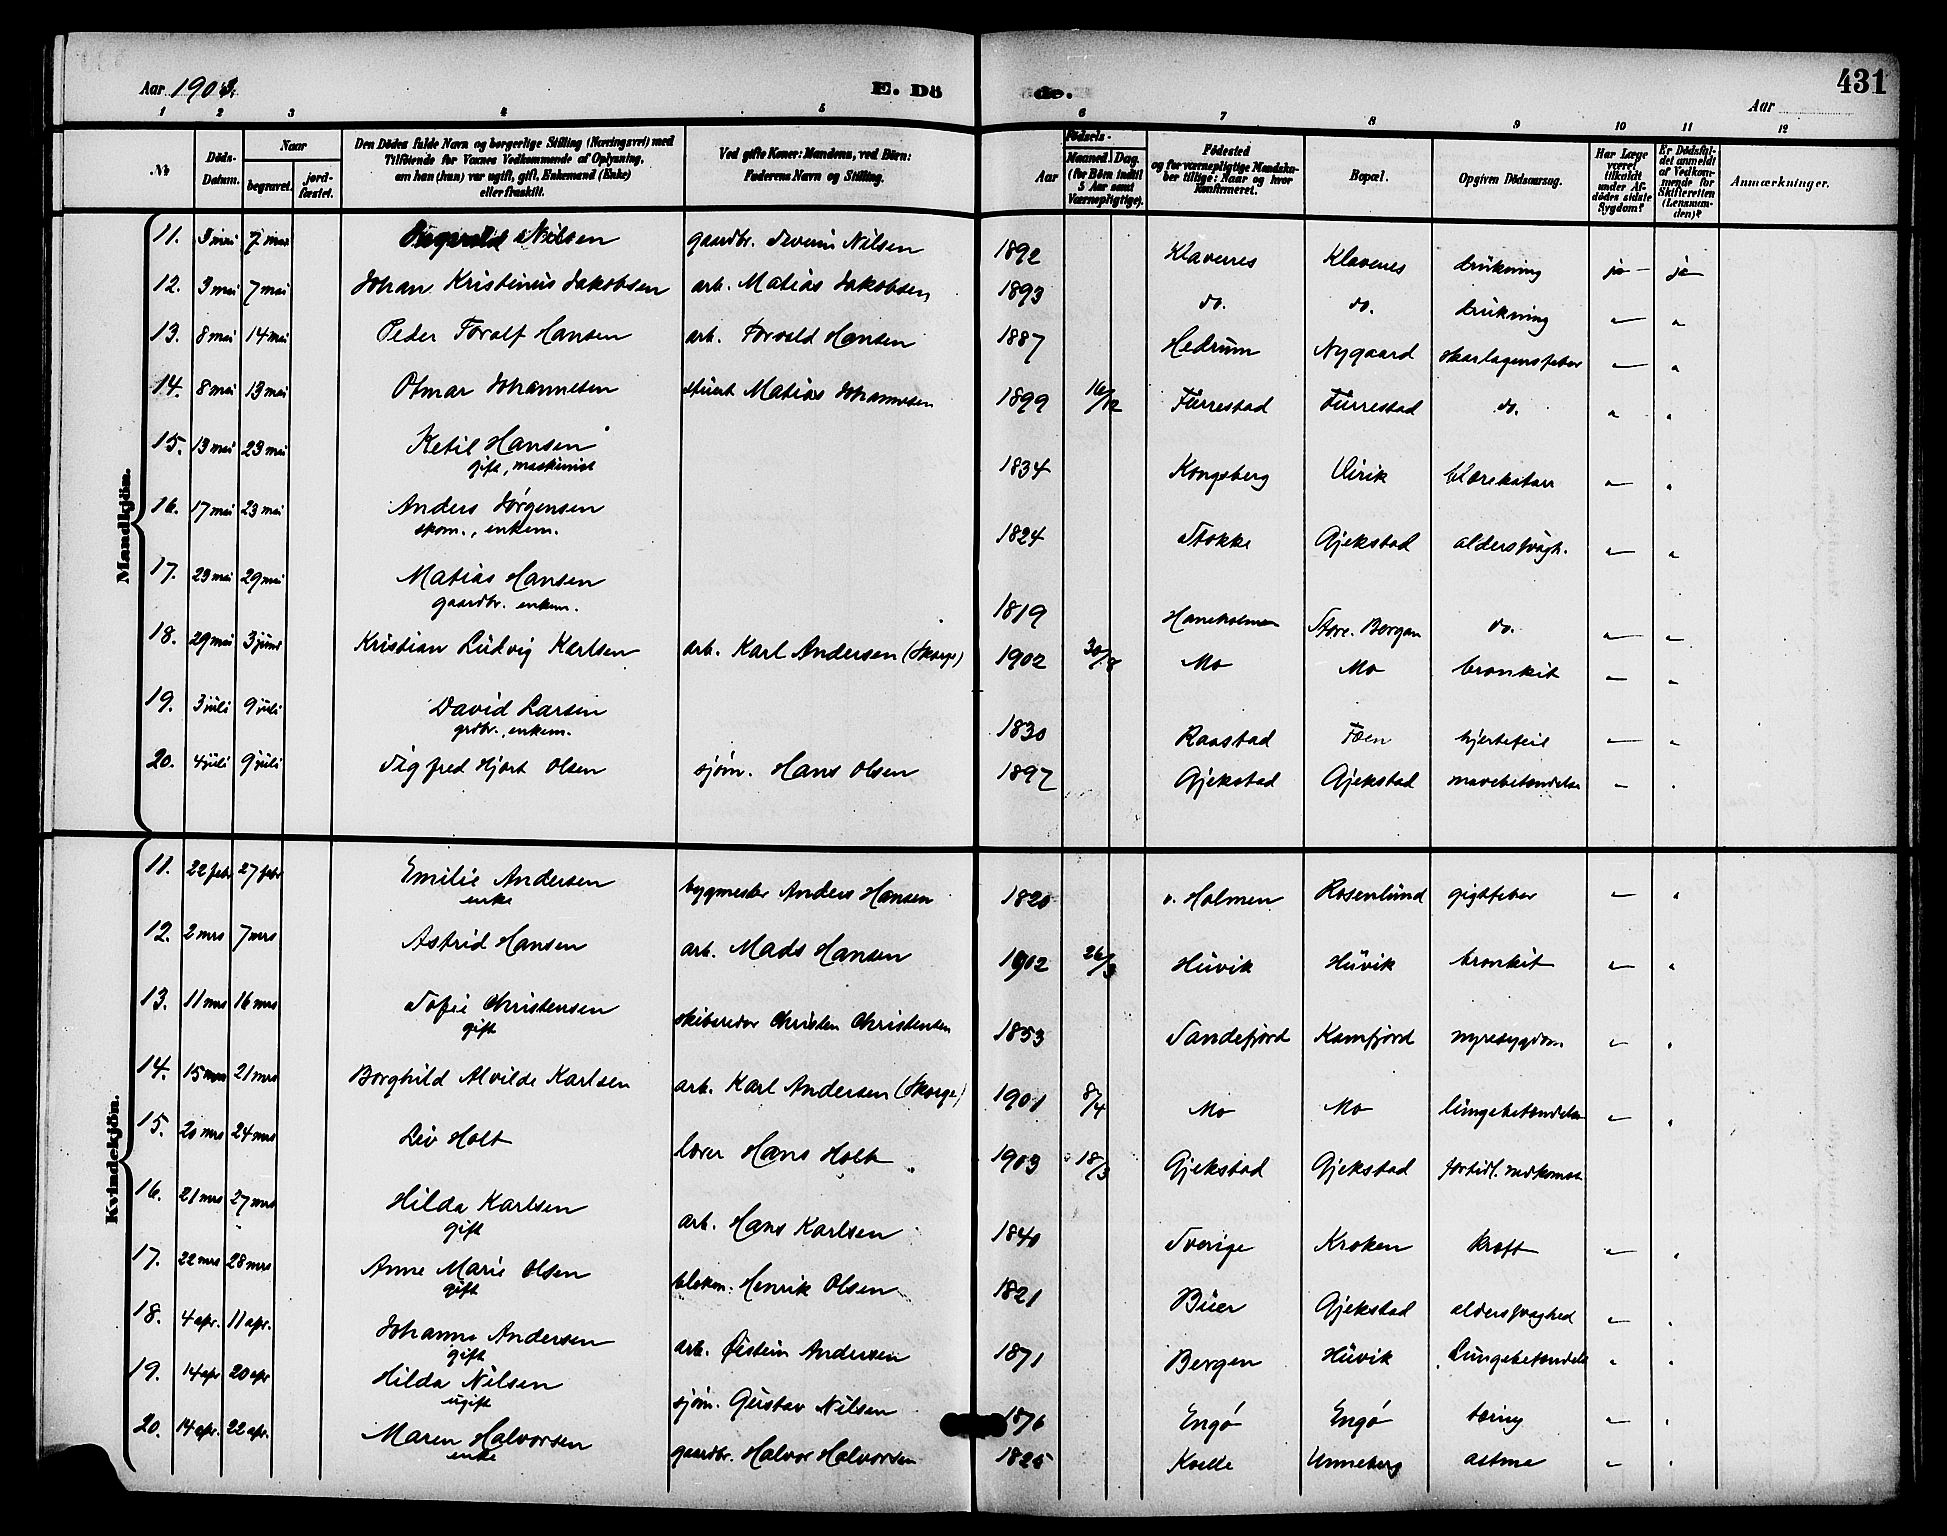 Aar 1903.
E. Dö
de.
431
Aar
1 2 3 4 5 6 7 8 9 10 11 12
No
Döds-Datum.
Naar
begravet.
jord-fæstet.
Den Dödes fulde Navn og borgerlige Stilling (Næringsvei) med
Tilföiende for Voxnes Vedkommende af Oplysning,
om han (hun) var ugift, gift, Enkemand (Enke)
eller fraskilt.
Ved gifte Koner: Mandens, ved Börn:
Faderens Navn og Stilling.
Födsels-
Aar
Maaned. Dag.
(for Börn indtil
5 Aar samt
Værnepligtige).
Födested
og for værnepligtige Mandska-
ber tillige: Naar og hvor
konfirmeret.
Bopæl.
Opgiven Dödsaarsag.
Har Læge
været
tilkaldt
under Af-
dödes sidste
Sygdom?
Er Dödsfal-
det anmeldt
af Vedkom-
mende for
Skifteretten
(Lensman-
den)?
Anmærkninger.
Mandkjön.
11. 3 mai 7 mai Nilsen gaardbr. Severin Nilsen 1892 Klavenes Klavenes drukning ja ja
12. 3 mai 7 mai Johan Kristinius Jakobsen arb. Matias Jakobsen 1893 do. do. drukning " "
13. 8 mai 14 mai Peder Toralf Hansen arb. Torvald Hansen 1887 Hedrum Nygaard skarlagensfeber " "
14. 8 mai 13 mai Otmar Johannesen stuert Matias Johannesen 1899 16/12 Furrestad Furrestad do. " "
15. 13 mai 23 mai Ketil Hansen 1834 Kongsberg Virik blærekatar " "
gift, maskinist
16. 17 mai 23 mai Anders Jørgensen 1824 Stokke Gjekstad alderssvagh. " "
skom., enkem.
17. 23 mai 29 mai Matias Hansen 1819 Haneholmen Store. Bergan do. " "
gaardbr. enkem.
18. 29 mai 3 juni Kristian Ludvig Karlsen arb. Karl Andersen (Skorge) 1902 Mo Mo bronkit " "
19. 3 juli 9 juli David Larsen 1830 Raastad Foen hjertefeil " "
grdbr., enkem.
20. 4 juli 9 juli Sigfred Hjort Olsen sjøm. Hans Olsen 1897 Gjekstad Gjekstad mavebetændelse " "
Kvindekjön.
11. 22 febr 27 febr Emilie Andersen bygmester Anders Hansen 1820 v. Holmen Rosenlund gigtfeber " "
enke
12. 2 mrs 7 mrs Astrid Hansen arb. Mads Hansen 1902 26/3 Huvik Huvik bronkit " "
13. 11 mrs 16 mrs Sofie Christensen skibsreder Christen Christensen 1853 Sandefjord Kamfjord nyresygdom. " "
gift
14. 15 mrs 21 mrs Borghild Alvilde Karlsen arb. Karl Andersen (Skorge) 1901 8/4 Mo Mo lungebetændelse " "
15. 20 mrs 24 mrs Liv Holt lærer Hans Holt 1903 18/3 Gjekstad Gjekstad fortidl. nedkomst " "
16. 21 mrs 27 mrs Hilda Karlsen arb. Hans Karlsen 1840 Sverige Kroken kræft " "
gift
17. 22 mrs 28 mrs Anne Marie Olsen blekm. Henrik Olsen 1821 Buer Gjekstad alderssvaghed " "
gift
18. 4 apr. 11 apr. Johanne Andersen arb. Øistein Andersen 1871 Bergen Huvik Lungebetændelse " "
gift
19. 14 apr 20 apr Hilda Nilsen sjøm. Gustav Nilsen 1876 Engø Engø tæring " "
ugift
20. 14 apr. 22 apr. Maren Halvorsen gaardbr. Halvor Halvorsen 1825 Kvelle Unneberg astma " "
enke